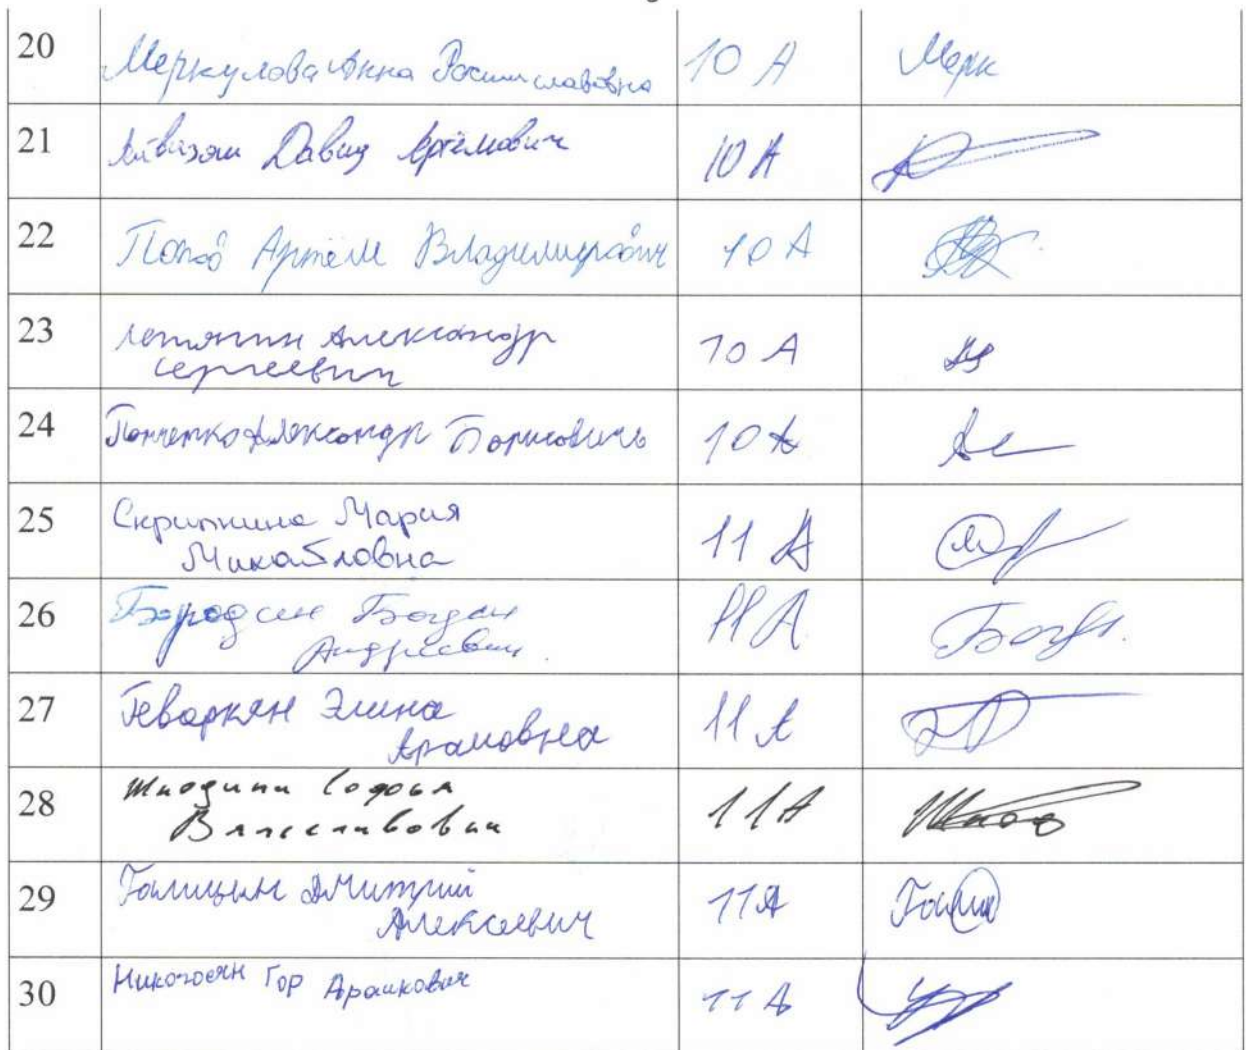 20 Меркулова Анна Ростиславовна 10 А Мерк
21 Айвазян Давид Артёмович 10 А
22 Попов Артём Владимирович 10 А
23 Александр 10 А
Сергеевич
24 Александр Борисовичь 10 А
25 Скрипкина Мария 11 А
Микайловна
26 Бородин Богдан 11 А
Андреевич.
27 Геваркян Элина 11 А
Арамовна
28 Шкодина Софья 11 А
Вячеславовна
29 Голицын Дмитрий 11 А
Алексеевич
30 Никогосян Гор Араикович 11 А